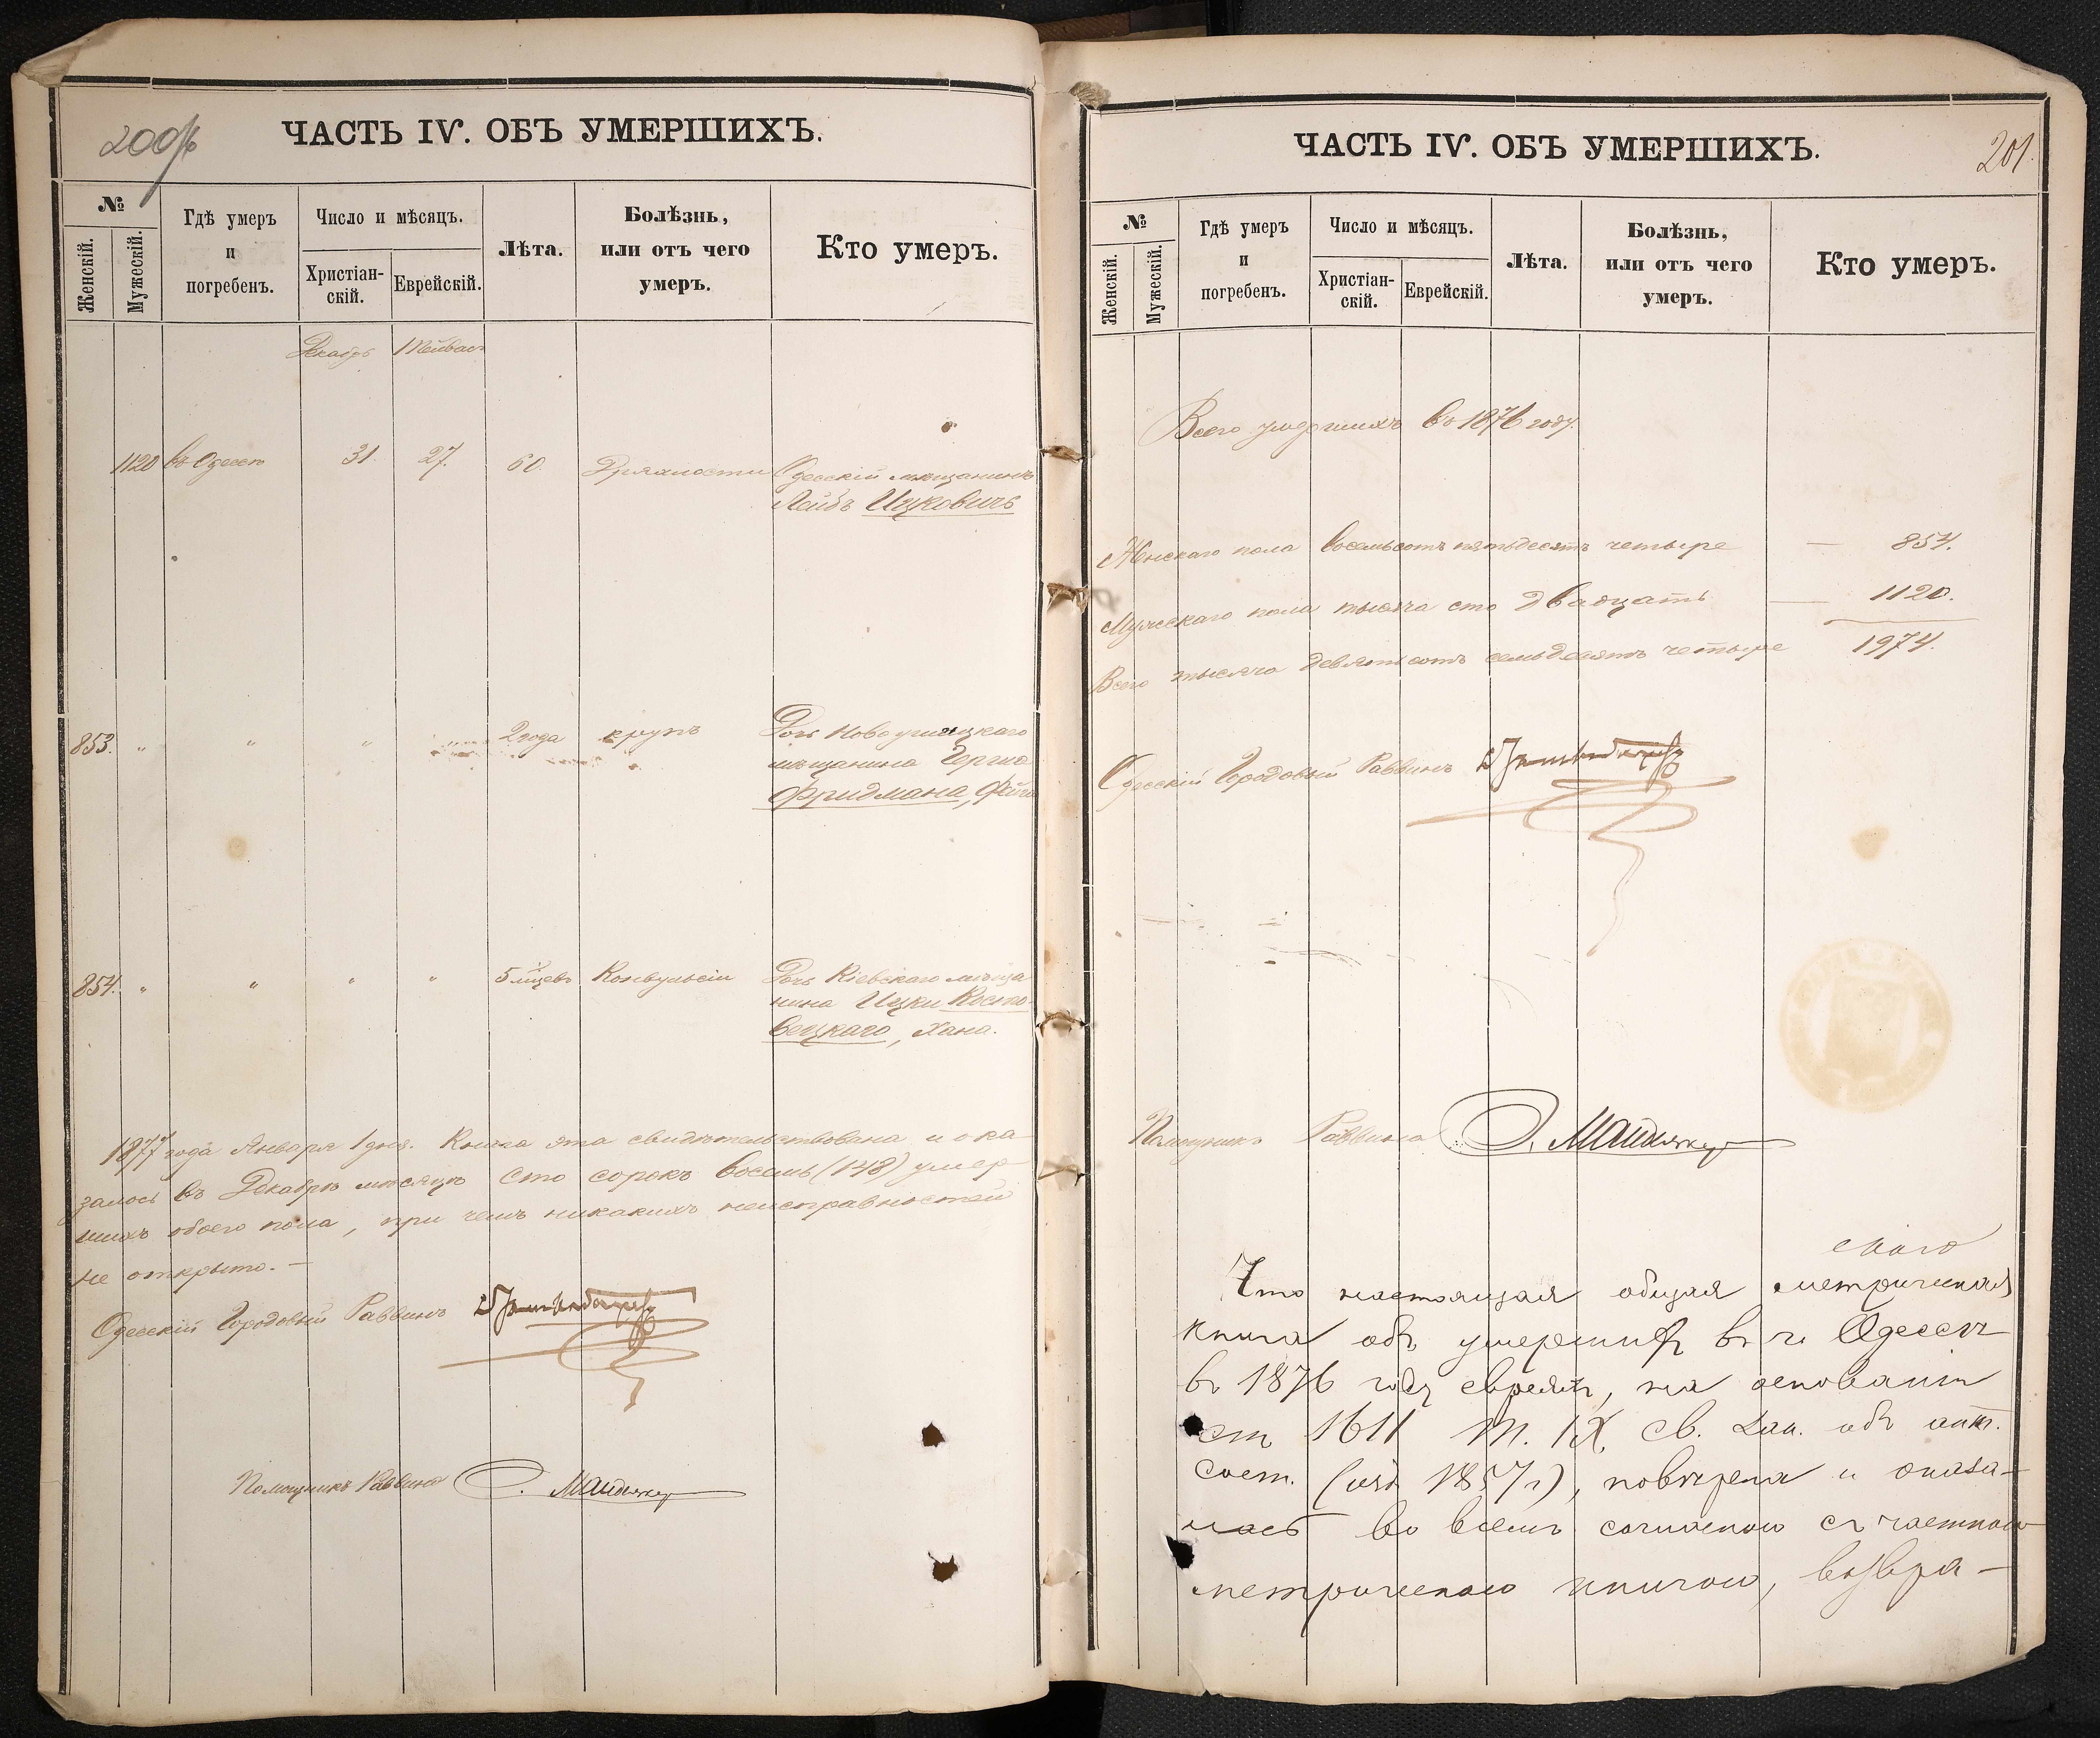 200об
ЧАСТЬ IV. ОБЪ УМЕРШИХЪ.
№
Женскій.
Мужескій.
Гдѣ умеръ
и
погребенъ.
Число и мѣсяцъ.
Христіан-
скій.
Еврейскій.
Лѣта.
Болѣзнь,
или отъ чего
умеръ.
Кто умеръ.
Декабрь
1120 въ Одессѣ 31. 27. 60. Дряхлости Одесскій мѣщанинъ
Лейбъ Ицковичъ
853. " " " " 2 года крупъ Дочь Новоушицкаго
мѣщанина
Фридмана, Фейга
854. " " " " 5 мѣцевъ Конвульсіи Дочь Кіевскаго мѣща
нина Ицки Косто-
вецкаго, Хана.
1877 года Января 1 дня. Книга эта свидѣтельствована и ока
залось въ Декабрѣ мѣсяцѣ сто сорокъ восемь (148) умер
шихъ обоего пола, при чемъ никакихъ неисправностей
не открыто. —
Одесскій Городовый Раввинъ
Помощникъ Раввина
ЧАСТЬ IV. ОБЪ УМЕРШИХЪ.
201.
№
Женскій.
Мужескій.
Гдѣ умеръ
и
погребенъ.
Число и мѣсяцъ.
Христіан-
скій.
Еврейскій.
Лѣта.
Болѣзнь,
или отъ чего
умеръ.
Кто умеръ.
Всего умершихъ въ 1876 году.
Женскаго пола восемьсотъ пятьдесятъ четыре — 854.
Мужескаго пола тысяча сто двадцать — 1120.
Всего тысяча девятьсотъ семьдесятъ четыре 1974.
Одесскій Городовый Раввинъ
Помощникъ Раввина
Что настоящая общая метрическая
книга объ умершихъ въ г. Одессѣ
въ 1876 году евреяхъ, на основаніи
ст 1611 т. IX св. Зак. объ
сост. (изд 1857 г), повѣрена и оказа-
лась во всемъ согласною съ частною
метрическою книгою, возвра-